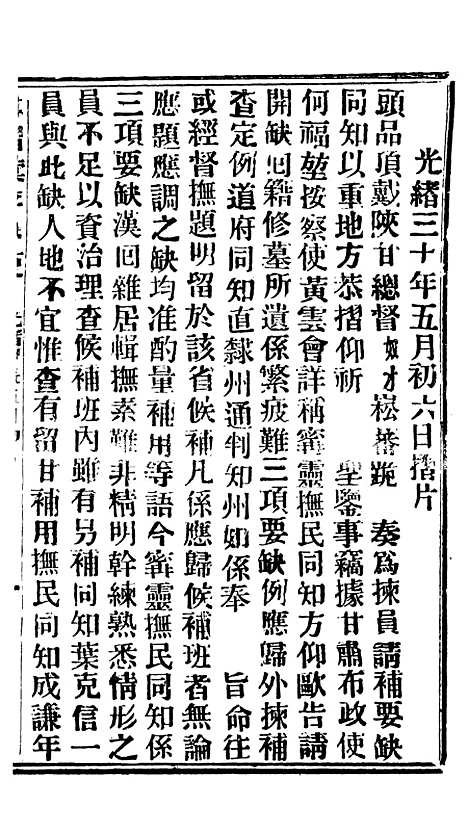 光緒三十年五月初六日摺片
頭品頂戴陝甘總督奴才崧蕃跪 奏爲揀員請補要缺
同知以重地方恭摺仰祈 聖鑒事竊據甘肅布政使
何福堃按察使黃雲會詳稱寧靈撫民同知方仰歐告請
開缺回籍修墓所遺係繁疲難三項要缺例應歸外揀補
查定例道府同知直隸州通判知州如係奉 旨命往
或經督撫題明留於該省候補凡係應歸候補班者無論
應題應調之缺均准酌量補用等語今寧靈撫民同知係
三項要缺漢回雜居輯撫素難非精明幹練熟悉情形之
員不足以資治理查候補班內雖有另補同知葉克信一
員與此缺人地不宜惟查有留甘補用撫民同知成謙年